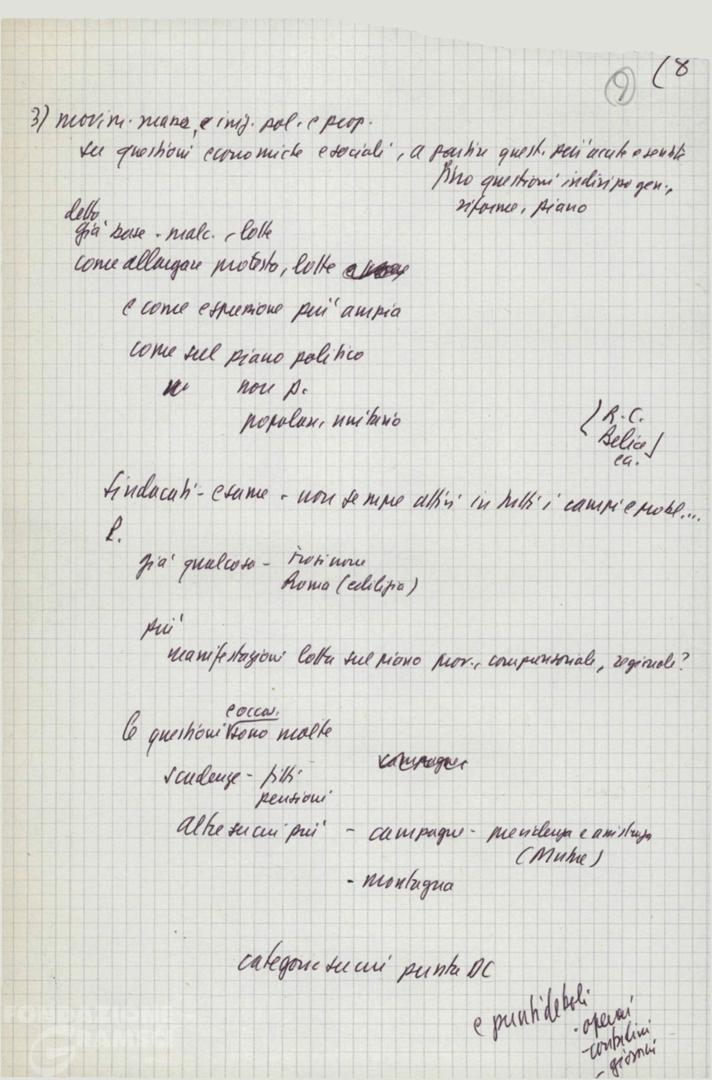 9 (8
3) movim. massa, e iniz. pol. e prop.
su questioni economiche e sociali, a partire quest. più acute e sentite
fino questioni indirizzo gen.,
riforme, piano
detto
già base - malc. , lotte
come allargare protesta, lotte
e come espressione più ampia
come sul piano politico
non p.
popolare, unitario
(R.C.
Belice)
ecc.
Sindacati - esame - non sempre attivi in tutti i campi e probl....
P.
già qualcosa - Frosinone
Roma (edilizia)
più
manifestazioni lotta sul piano prov., comprensoriale, regionale?
e occas.
le questioni sono molte
scadenze - fitti
pensioni
altre su cui più - campagne - previdenza e assistenza
(Mutue)
- montagna
categorie su cui punta DC
e punti deboli
- operai
- contadini
- giovani
FONDAZIONE
GRAMSCI